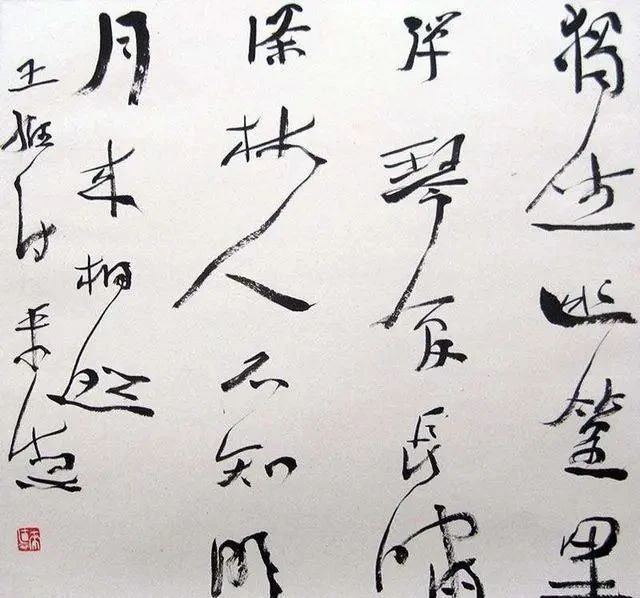 獨坐幽篁里
彈琴复長嘯
深林人不知明
月来相照
王維诗